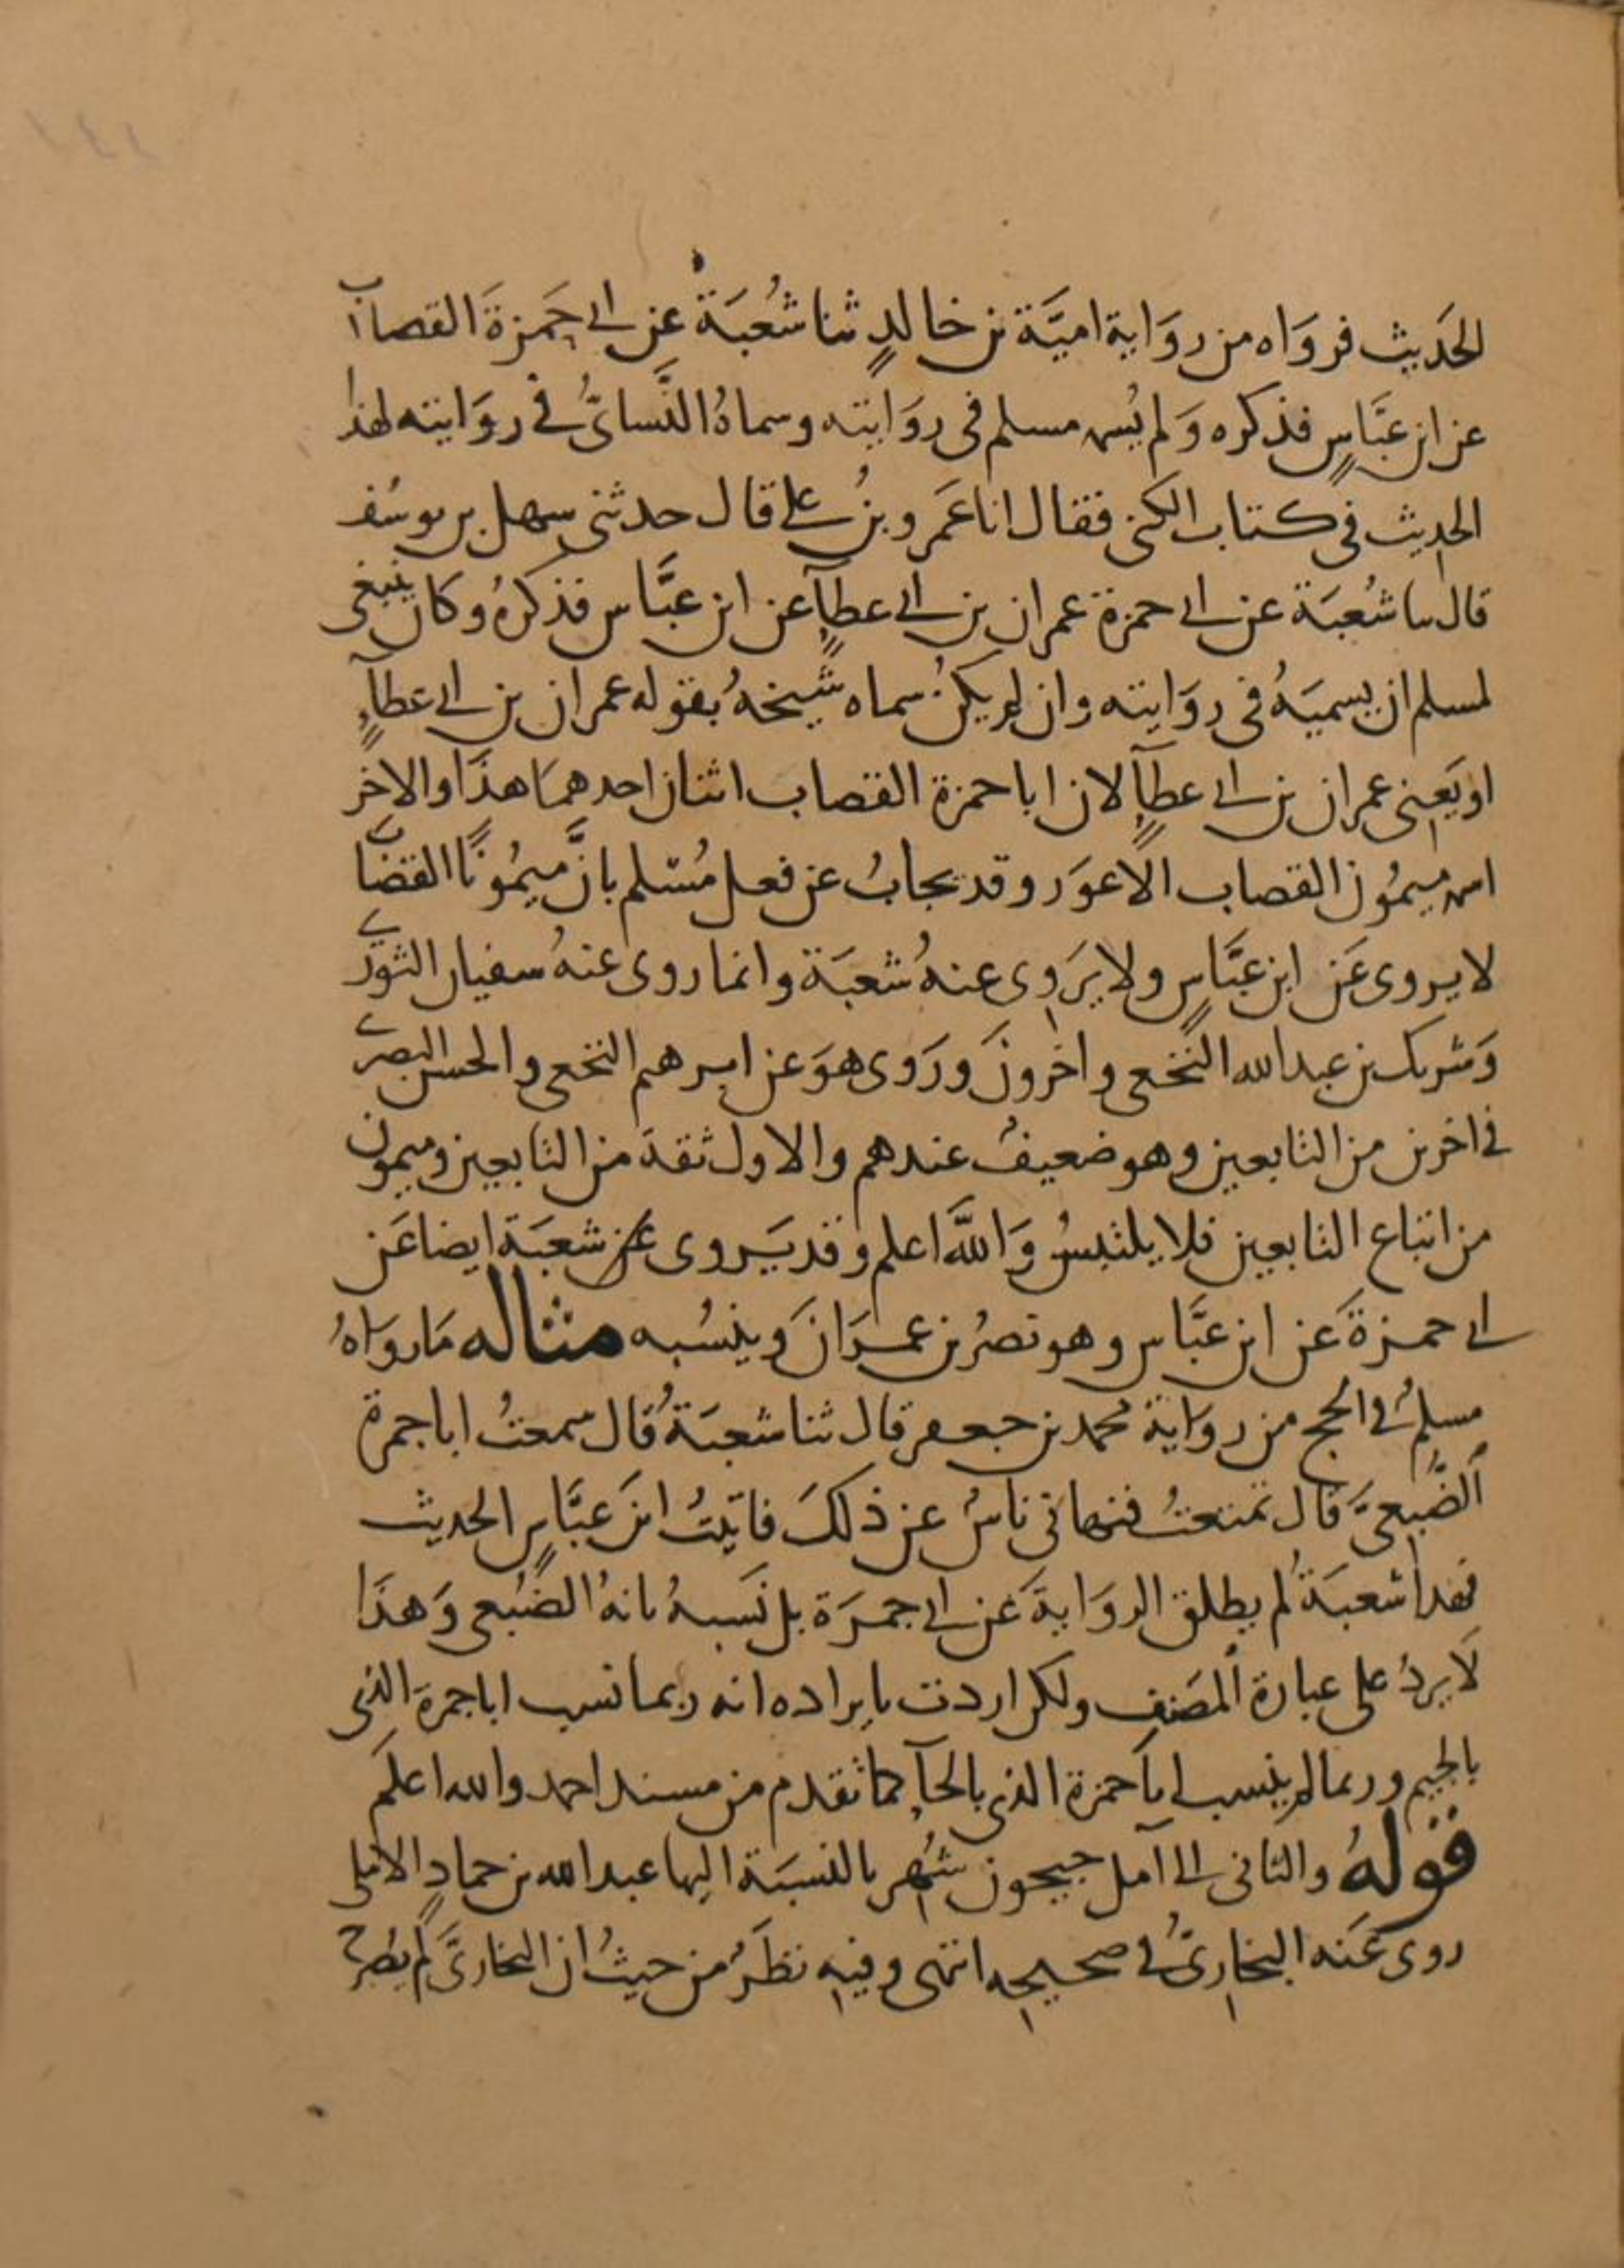 الحَديث فروَاه من روَاية اميَّة بن خالدٍ ثنا شُعبَة عن ابي حَمزةَ القصاب
عن ابن عبَّاسٍ فذكره وَلم يُسمه مسلم في روَايته وسماهُ النَّسائيُّ في روَايته لهذا
الحديث في كتاب الكنى فقال انا عَمرو بنُ علي قال حدثني سهل بن يوسُف
قال ثنا شُعبَة عن ابي حمزة عمران بن ابي عطآءٍ عن ابن عبَّاس فذكرهُ وكان ينبغي
لمسلم ان يسميَهُ في روَايته وان لم يكنْ سماه شيخهُ بقوله عمران بن ابي عطآءٍ
او يَعني عمران بن ابي عطآءٍ لان ابا حمزة القصاب اثنان احدهمَا هذَا والاخر
اسمه ميمُون القصاب الاعوَر وقد يجابُ عن فعل مُسْلم بانَّ ميمُونًا القصاب
لا يروى عَن ابن عبَّاسٍ ولا يرَوى عنهُ شعبَة وانما روى عنهُ سفيان الثوريّ
وَشريك بن عبد الله النخَعي واخرونَ ورَوى هوَ عن ابرهيم النخعي والحسن البصري
في اخرين من التابعين وهو ضعيفٌ عندهم والاول ثقة من التابعين وميمون
من اتباع التابعين فلا يلتبسُ وَاللهُ اعلم وقد يَروى عن شعبَة ايضا عَن
ابي حمزةَ عن ابن عبَّاس وهو نصرُ بن عمرَانَ وينسُبه مثاله مَا روَاهُ
مسلمٌ في الحج من روَاية محمد بن جعفر قال ثنا شعبَةُ قال سمعتُ ابا جمرة
الضُّبعيَّ قال تمتعتُ فنهاني ناسٌ عن ذلكَ فاتيتُ ابنَ عبَّاسٍ الحديث
فهذا شعبَةُ لم يطلق الروَايةَ عَن ابي جمرَة بل نَسبهُ بانهُ الضُبعي وَهذَا
لَا يردُ على عبارة المصَنف ولكن اردت بايراده انه ربما نسب ابا جمرةَ الذي
بالجيم وربما لم ينسب ابا حمزة الذي بالحآءِ كما تقدم من مسند احمد والله اعلم
قولهُ والثاني الى آمل جيحون شُهر بالنسبَة اليها عبد الله بن حمادٍ الاملي
روى عَنه البخاريُّ في صحيحه انتهى وفيه نظَرٌ من حيثُ ان البخاريَّ لم يصرح